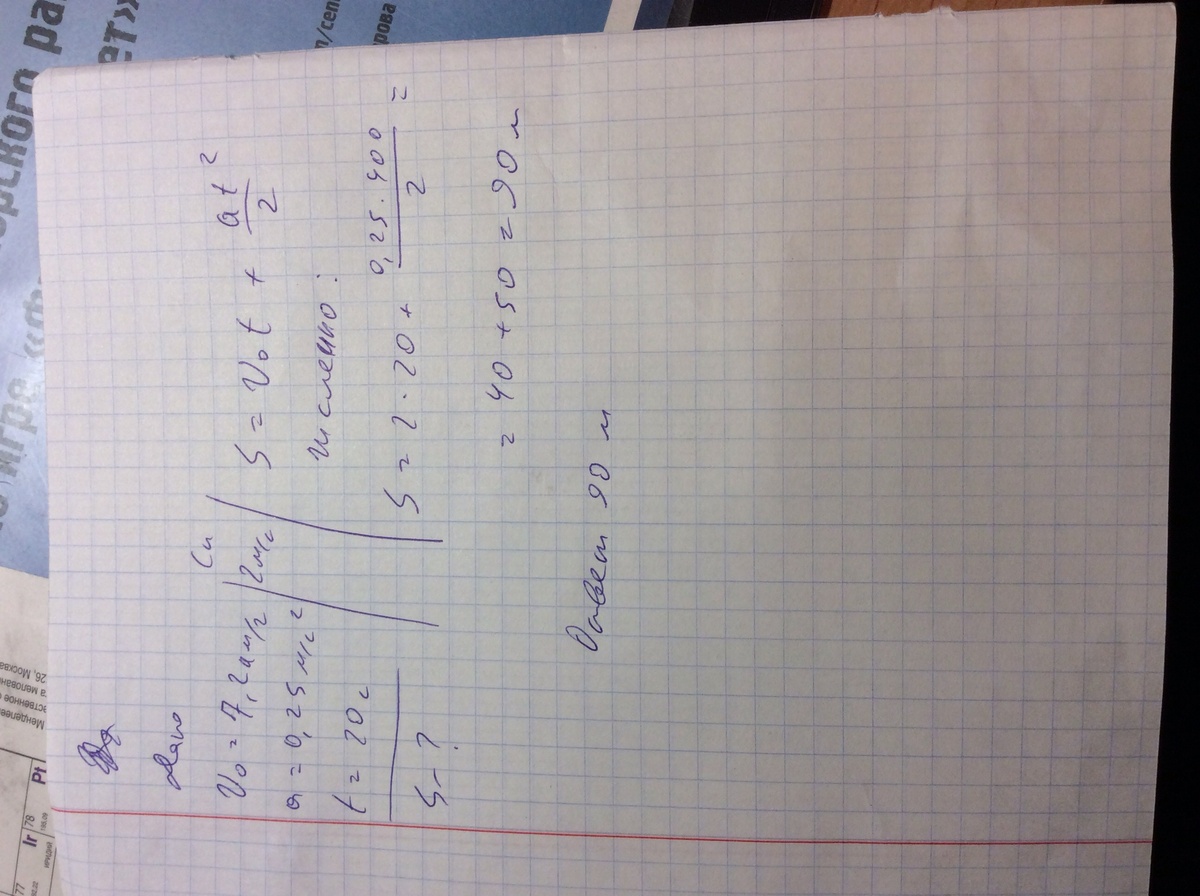 Дано
V₀ = 7,2 км/ч | Си 2 м/с
a = 0,25 м/с²
t = 20 с
S - ?
S = V₀ t + at²/2
Численно:
S = 2 · 20 + 0,25 · 400 / 2 =
= 40 + 50 = 90 м
Ответ 90 м
77
Ir 78
Pt
26, Москва